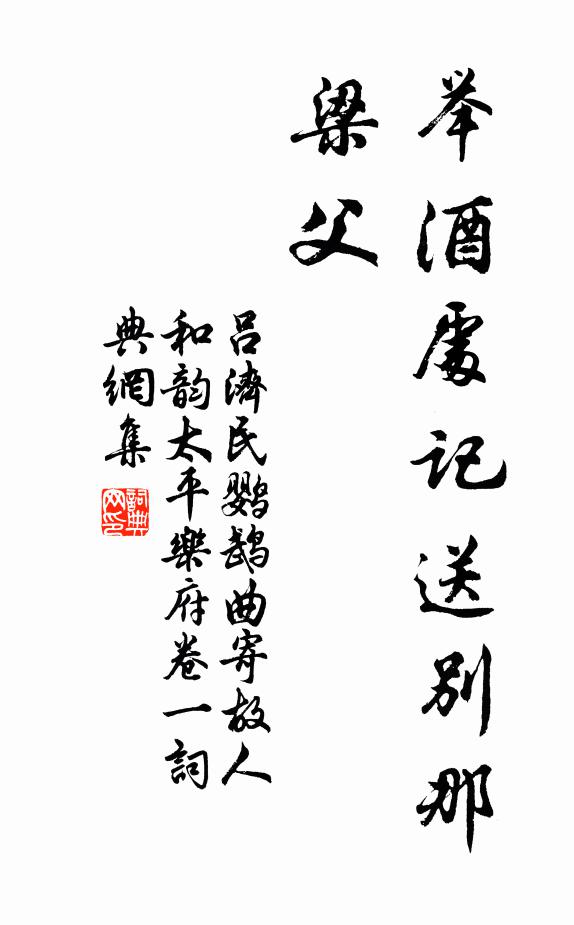 举酒處记送别那
梁父
吕濟民鹦鹉曲寄故人
和韵太平樂府卷一詞
典網集
詞典网印